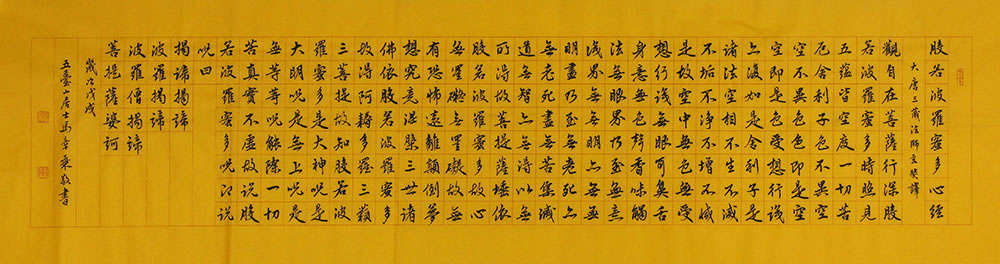 般若波羅蜜多心經
大唐三藏法師玄奘譯
觀自在菩薩行深般
若波羅蜜多時照見
五蘊皆空度一切苦
厄舍利子色不異空
空不異色色即是空
空即是色受想行識
亦復如是舍利子是
諸法空相不生不滅
不垢不淨不增不減
是故空中無色無受
想行識無眼耳鼻舌
身意無色聲香味觸
法無眼界乃至無意
識界無無明亦無無
明盡乃至無老死亦
無老死盡無苦集滅
道無智亦無得以無
所得故菩提薩埵依
般若波羅蜜多故心
無罣礙無罣礙故無
有恐怖遠離顛倒夢
想究竟涅槃三世諸
佛依般若波羅蜜多
故得阿耨多羅三藐
三菩提故知般若波
羅蜜多是大神呪是
大明呪是無上呪是
無等等呪能除一切
苦真實不虛故說般
若波羅蜜多呪即說
呪曰
揭諦揭諦
波羅揭諦
波羅僧揭諦
菩提薩婆訶
歲次戊戌
五臺山居士馬敬書